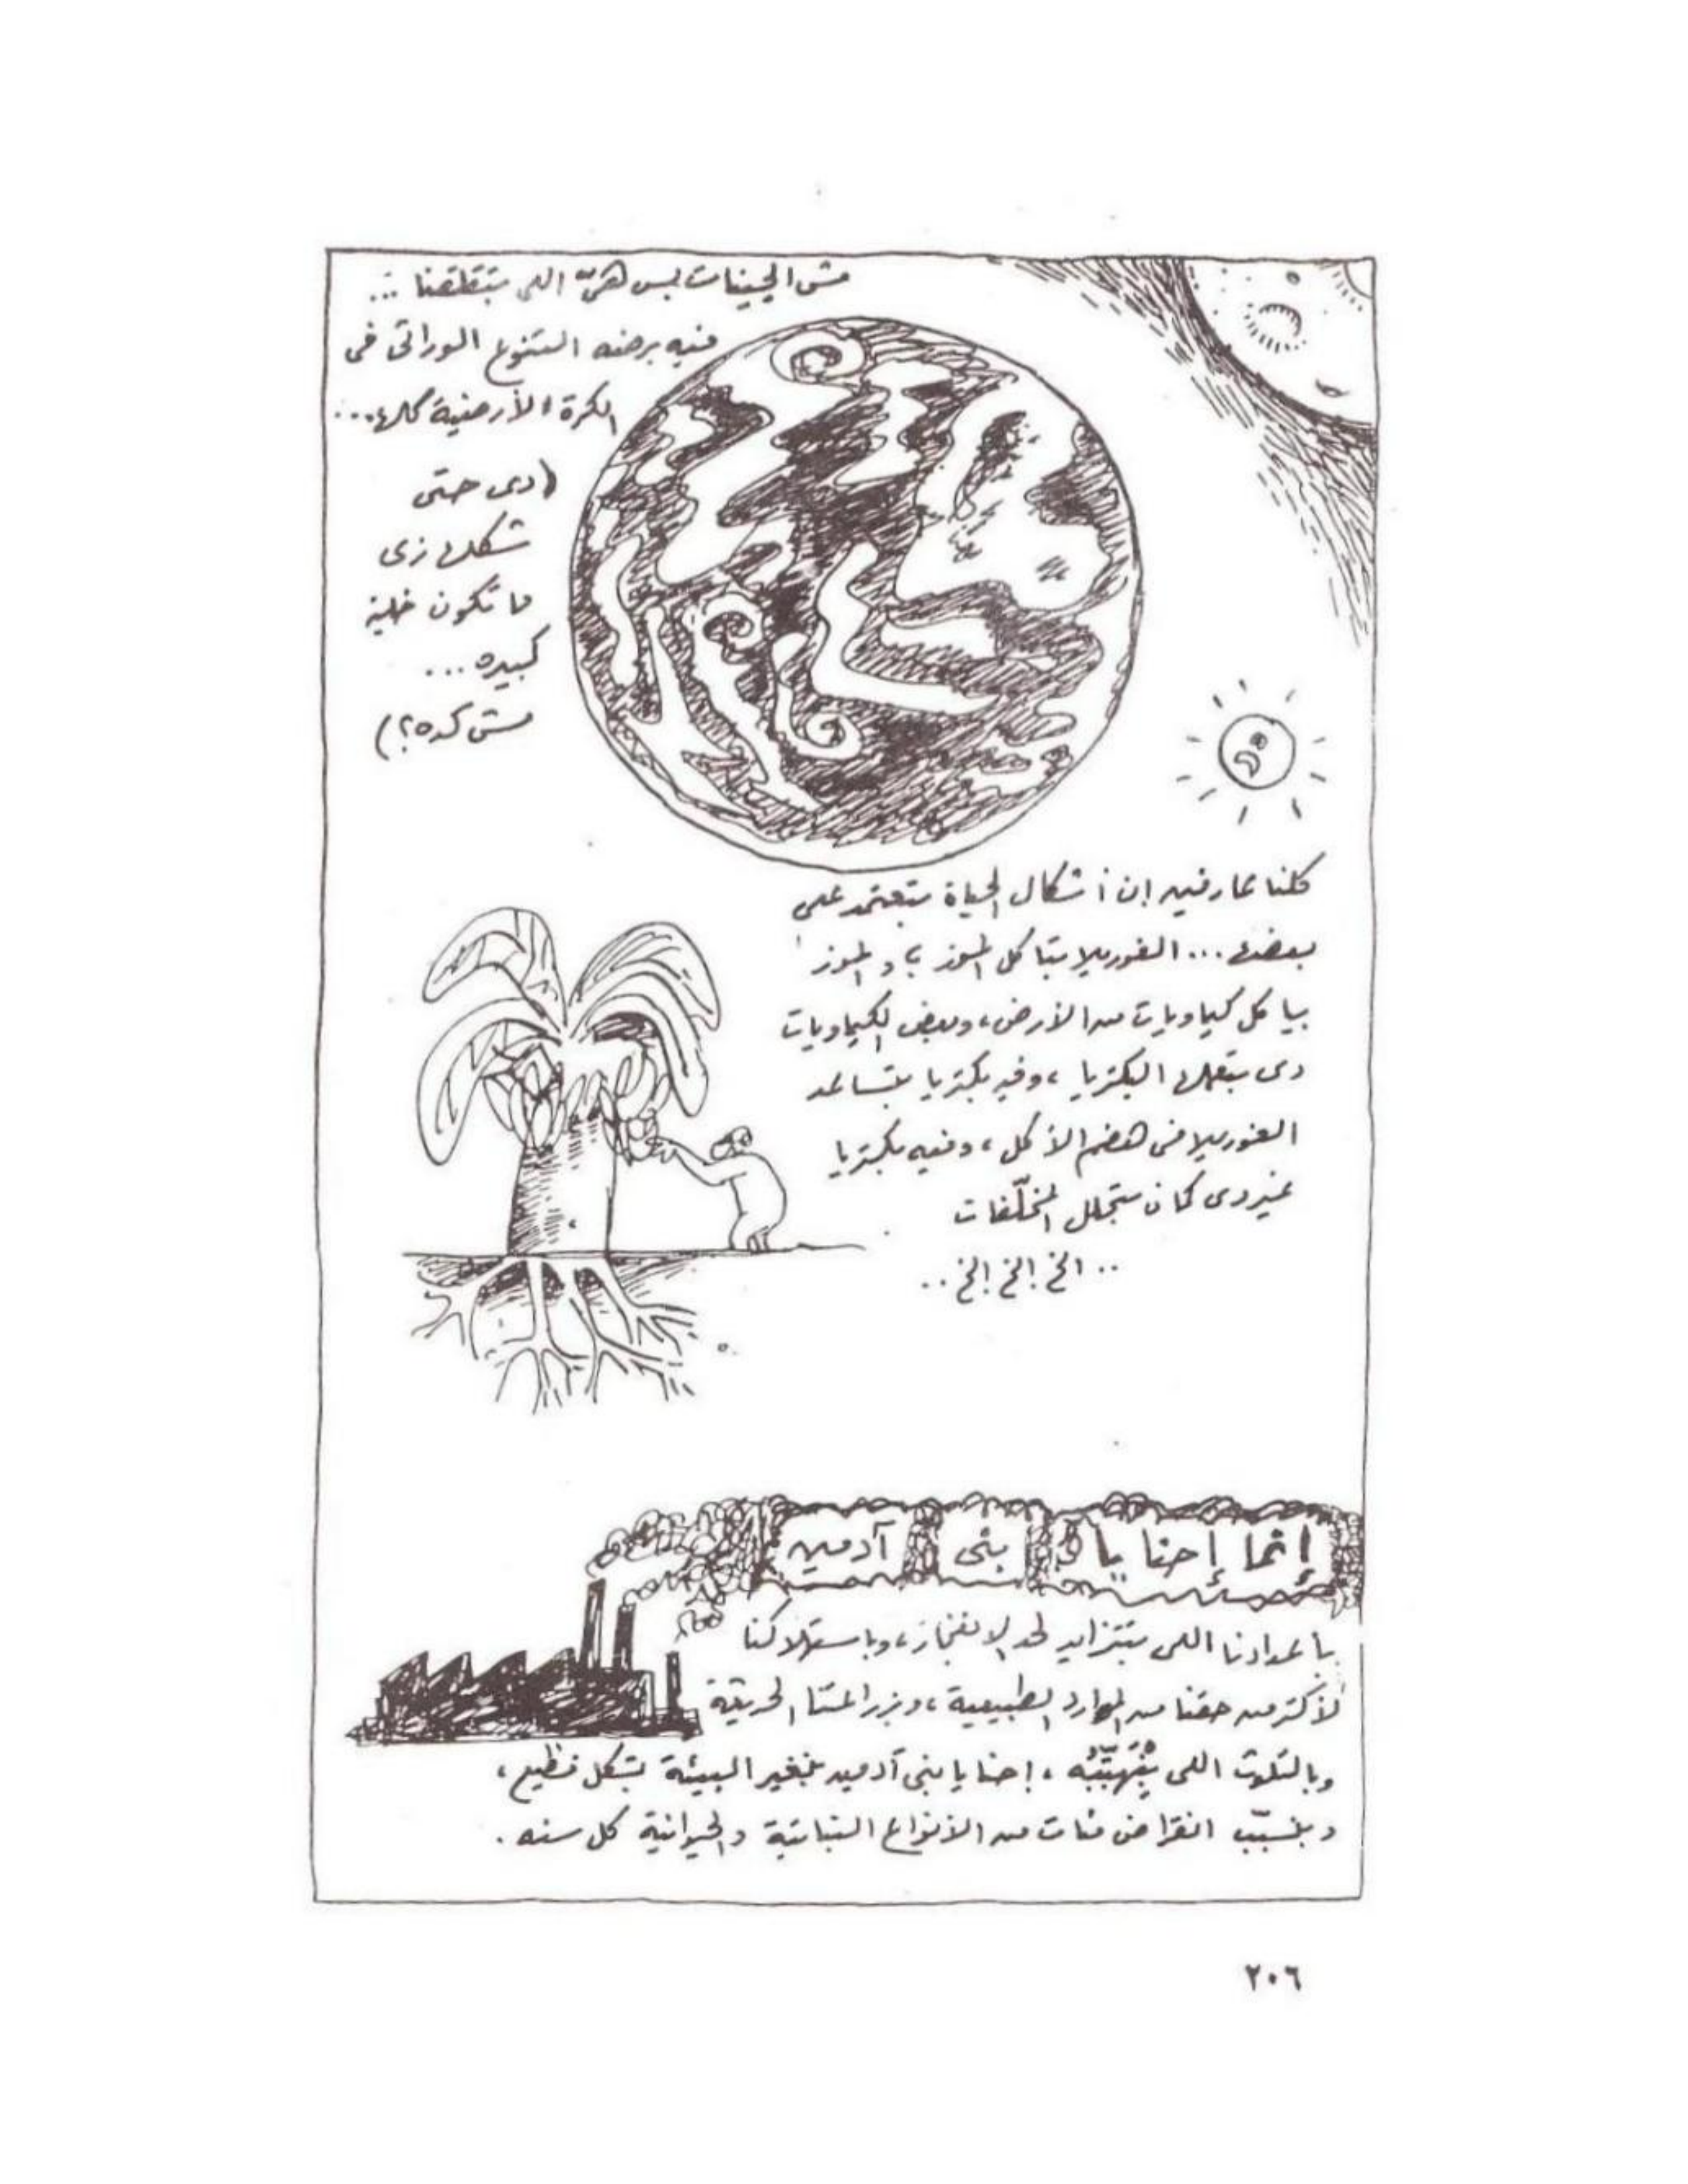 مش الجينات بس هيّ اللي بتقلقنا ...
فيه برضه التنوع الوراثى فى
الكرة الأرضية كلها...
(دى حتى
شكلها زى
ما تكون خلية
كبيره ...
مش كده؟)
كلنا عارفين إن أشكال الحياة بتعتمد على
بعضها... الغوريلا بتاكل الموز ، والموز
بياكل كيماويات من الأرض، وبعض الكيماويات
دى بتعملها البكتريا ، وفيه بكتريا بتساعد
الغوريلا فى هضم الأكل ، وفيه بكتريا
غير دى كمان بتحلل المخلّفات
.. الخ الخ الخ ..
إنما إحنا يا بنى آدمين
بأعدادنا اللى بتتزايد لحد الانفجار، وباستهلاكنا
لأكتر من حقنا من الموارد الطبيعية ، وبزراعتنا الحديثة
وبالتلوث اللى بنهبّبه ، إحنا يا بنى آدمين بنغير البيئة بشكل فظيع ،
وبنسبّب انقراض مئات من الأنواع النباتية والحيوانية كل سنه .
٢٠٦